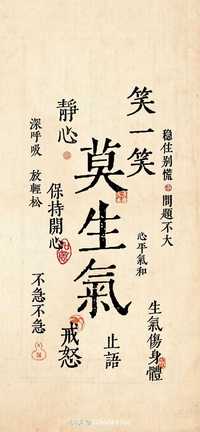 穩住别慌 問題不大
笑一笑
心平氣和
生氣傷身體
莫生氣
止語
靜心
保持開心
戒怒
深呼吸 放輕松
不急不急